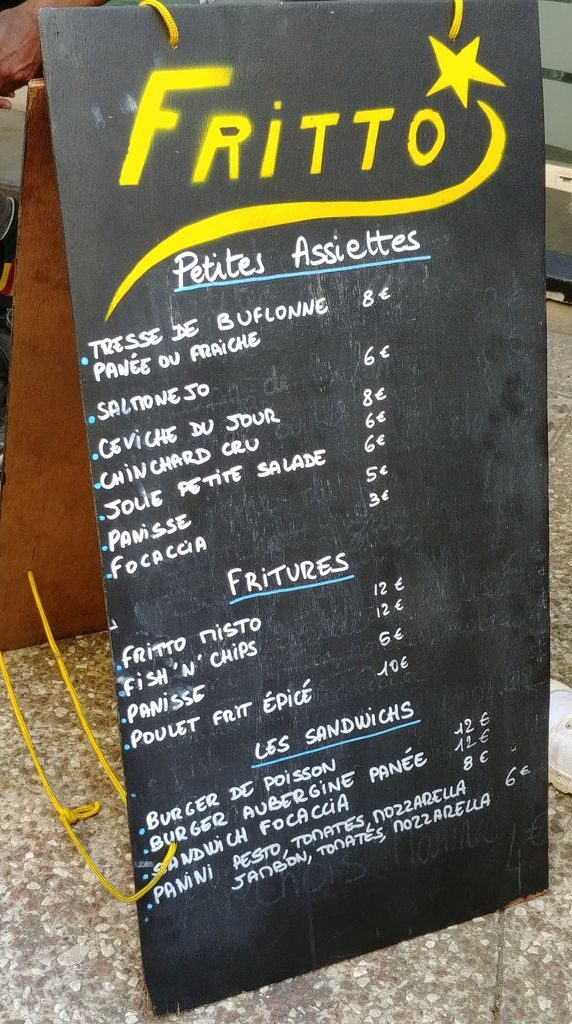 FRITTO
Petites Assiettes
TRESSE DE BUFLONNE 8€
PANÉE OU FRAICHE
SALMONEJO 6€
CEVICHE DU JOUR 8€
CHINCHARD CRU 6€
JOLIE PETITE SALADE 6€
PANISSE 5€
FOCACCIA 3€
FRITURES
FRITTO MISTO 12€
FISH 'N' CHIPS 12€
PANISSE 5€
POULET FRIT ÉPICÉ 10€
LES SANDWICHS
BURGER DE POISSON 12€
BURGER AUBERGINE PANÉE 12€
SANDWICH FOCACCIA 8€
PANINI PESTO, TOMATES, MOZZARELLA 6€
JAMBON, TOMATES, MOZZARELLA